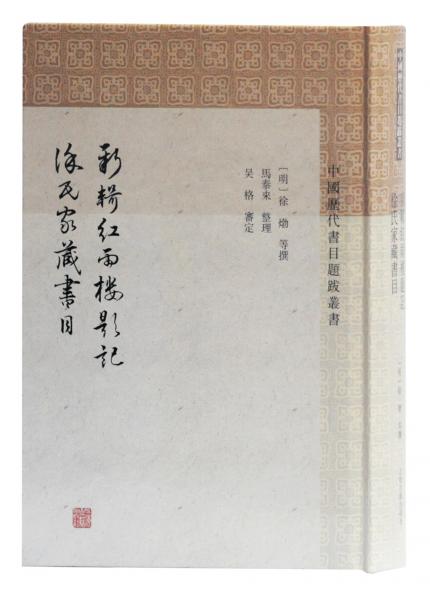 徐氏家藏書目
中國歷代書目題跋叢書
［明］徐 𤊹 等撰
馬泰來 整理
吴 格 審定
新輯紅雨樓題記
徐氏家藏書目